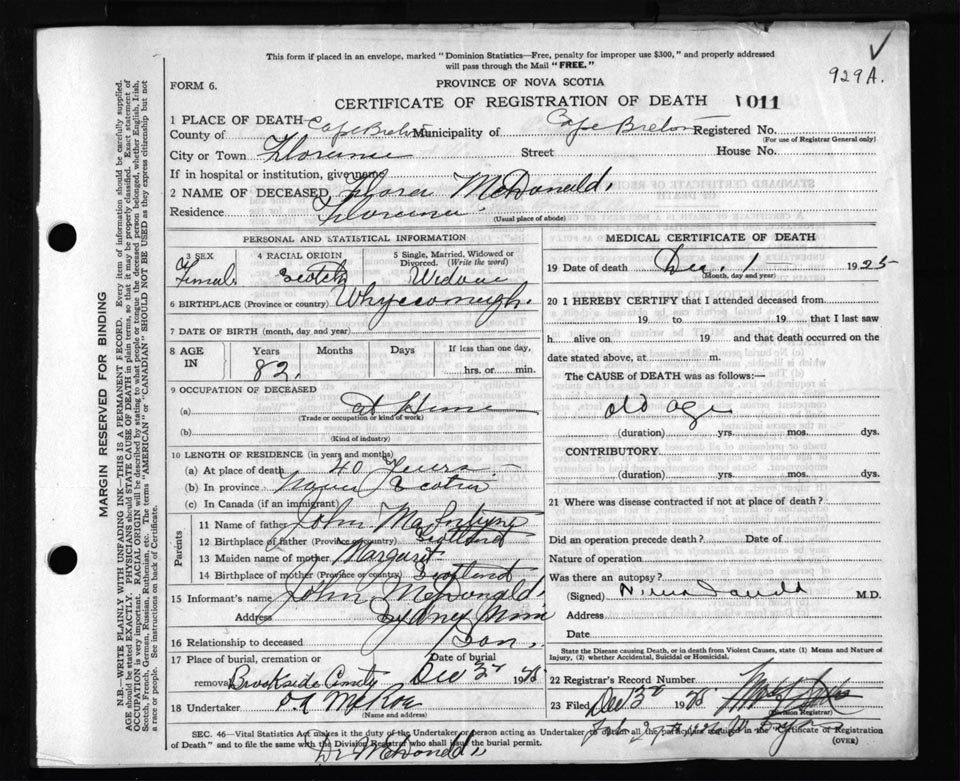 This form if placed in an envelope, marked "Dominion Statistics—Free, penalty for improper use $300," and properly addressed
will pass through the Mail "FREE."
929A.
FORM 6.
PROVINCE OF NOVA SCOTIA
CERTIFICATE OF REGISTRATION OF DEATH 1011
1 PLACE OF DEATH—
County of Cape Breton Municipality of Cape Breton Registered No.
(For use of Registrar General only)
City or Town Florence Street House No.
If in hospital or institution, give name
2 NAME OF DECEASED Flora McDonald.
Residence Florence
(Usual place of abode)
PERSONAL AND STATISTICAL INFORMATION
3 SEX
Female
4 RACIAL ORIGIN
Scotch
5 Single, Married, Widowed or
Divorced. (Write the word)
Widow
6 BIRTHPLACE (Province or country) Whycocomagh.
7 DATE OF BIRTH (month, day and year)
8 AGE IN
Years Months Days If less than one day,
82. hrs. or min.
9 OCCUPATION OF DECEASED
(a) at Home
(Trade or occupation or kind of work)
(b)
(Kind of industry)
10 LENGTH OF RESIDENCE (in years and months)
(a) At place of death 40 Years
(b) In province Nova Scotia
(c) In Canada (if an immigrant)
Parents
11 Name of father John
12 Birthplace of father (Province or country) Scotland
13 Maiden name of mother Margaret
14 Birthplace of mother (Province or country) Scotland
15 Informant's name John McDonald
Address Sydney Mines
16 Relationship to deceased Son.
17 Place of burial, cremation or Date of burial
removal Brookside Dec 3rd 1925
18 Undertaker McRae
(Name and address)
MEDICAL CERTIFICATE OF DEATH
19 Date of death Dec. 1 1925
(Month, day and year)
20 I HEREBY CERTIFY that I attended deceased from
19 to 19 that I last saw
h alive on 19 and that death occurred on the
date stated above, at m.
The CAUSE OF DEATH was as follows:—
old age
(duration) yrs. mos. dys.
CONTRIBUTORY
(duration) yrs. mos. dys.
21 Where was disease contracted if not at place of death?
Did an operation precede death? Date of
Nature of operation
Was there an autopsy?
(Signed) M.D.
Address
Date
State the Disease causing Death, or in death from Violent Causes, state (1) Means and Nature of
Injury, (2) whether Accidental, Suicidal or Homicidal.
22 Registrar's Record Number
23 Filed Dec 3rd 1925
(Division Registrar)
SEC. 46—Vital Statistics Act makes it the duty of the Undertaker or person acting as Undertaker to obtain all the particulars required in the "Certificate of Registration
of Death" and to file the same with the Division Registrar who shall issue the burial permit. (OVER)
Dr McDonald,
MARGIN RESERVED FOR BINDING
N.B.—WRITE PLAINLY WITH UNFADING INK—THIS IS A PERMANENT RECORD. Every item of information should be carefully supplied.
AGE should be stated EXACTLY. PHYSICIANS should STATE CAUSE OF DEATH in plain terms, so that it may be properly classified. Exact statement of
OCCUPATION is very important. RACIAL ORIGIN will be described by stating to what people or tongue the deceased person belonged, whether English, Irish,
Scotch, French, German, Russian, Ruthenian, etc. The terms "AMERICAN" or "CANADIAN" SHOULD NOT BE USED as they express citizenship but not
a race or people. See instructions on back of Certificate.